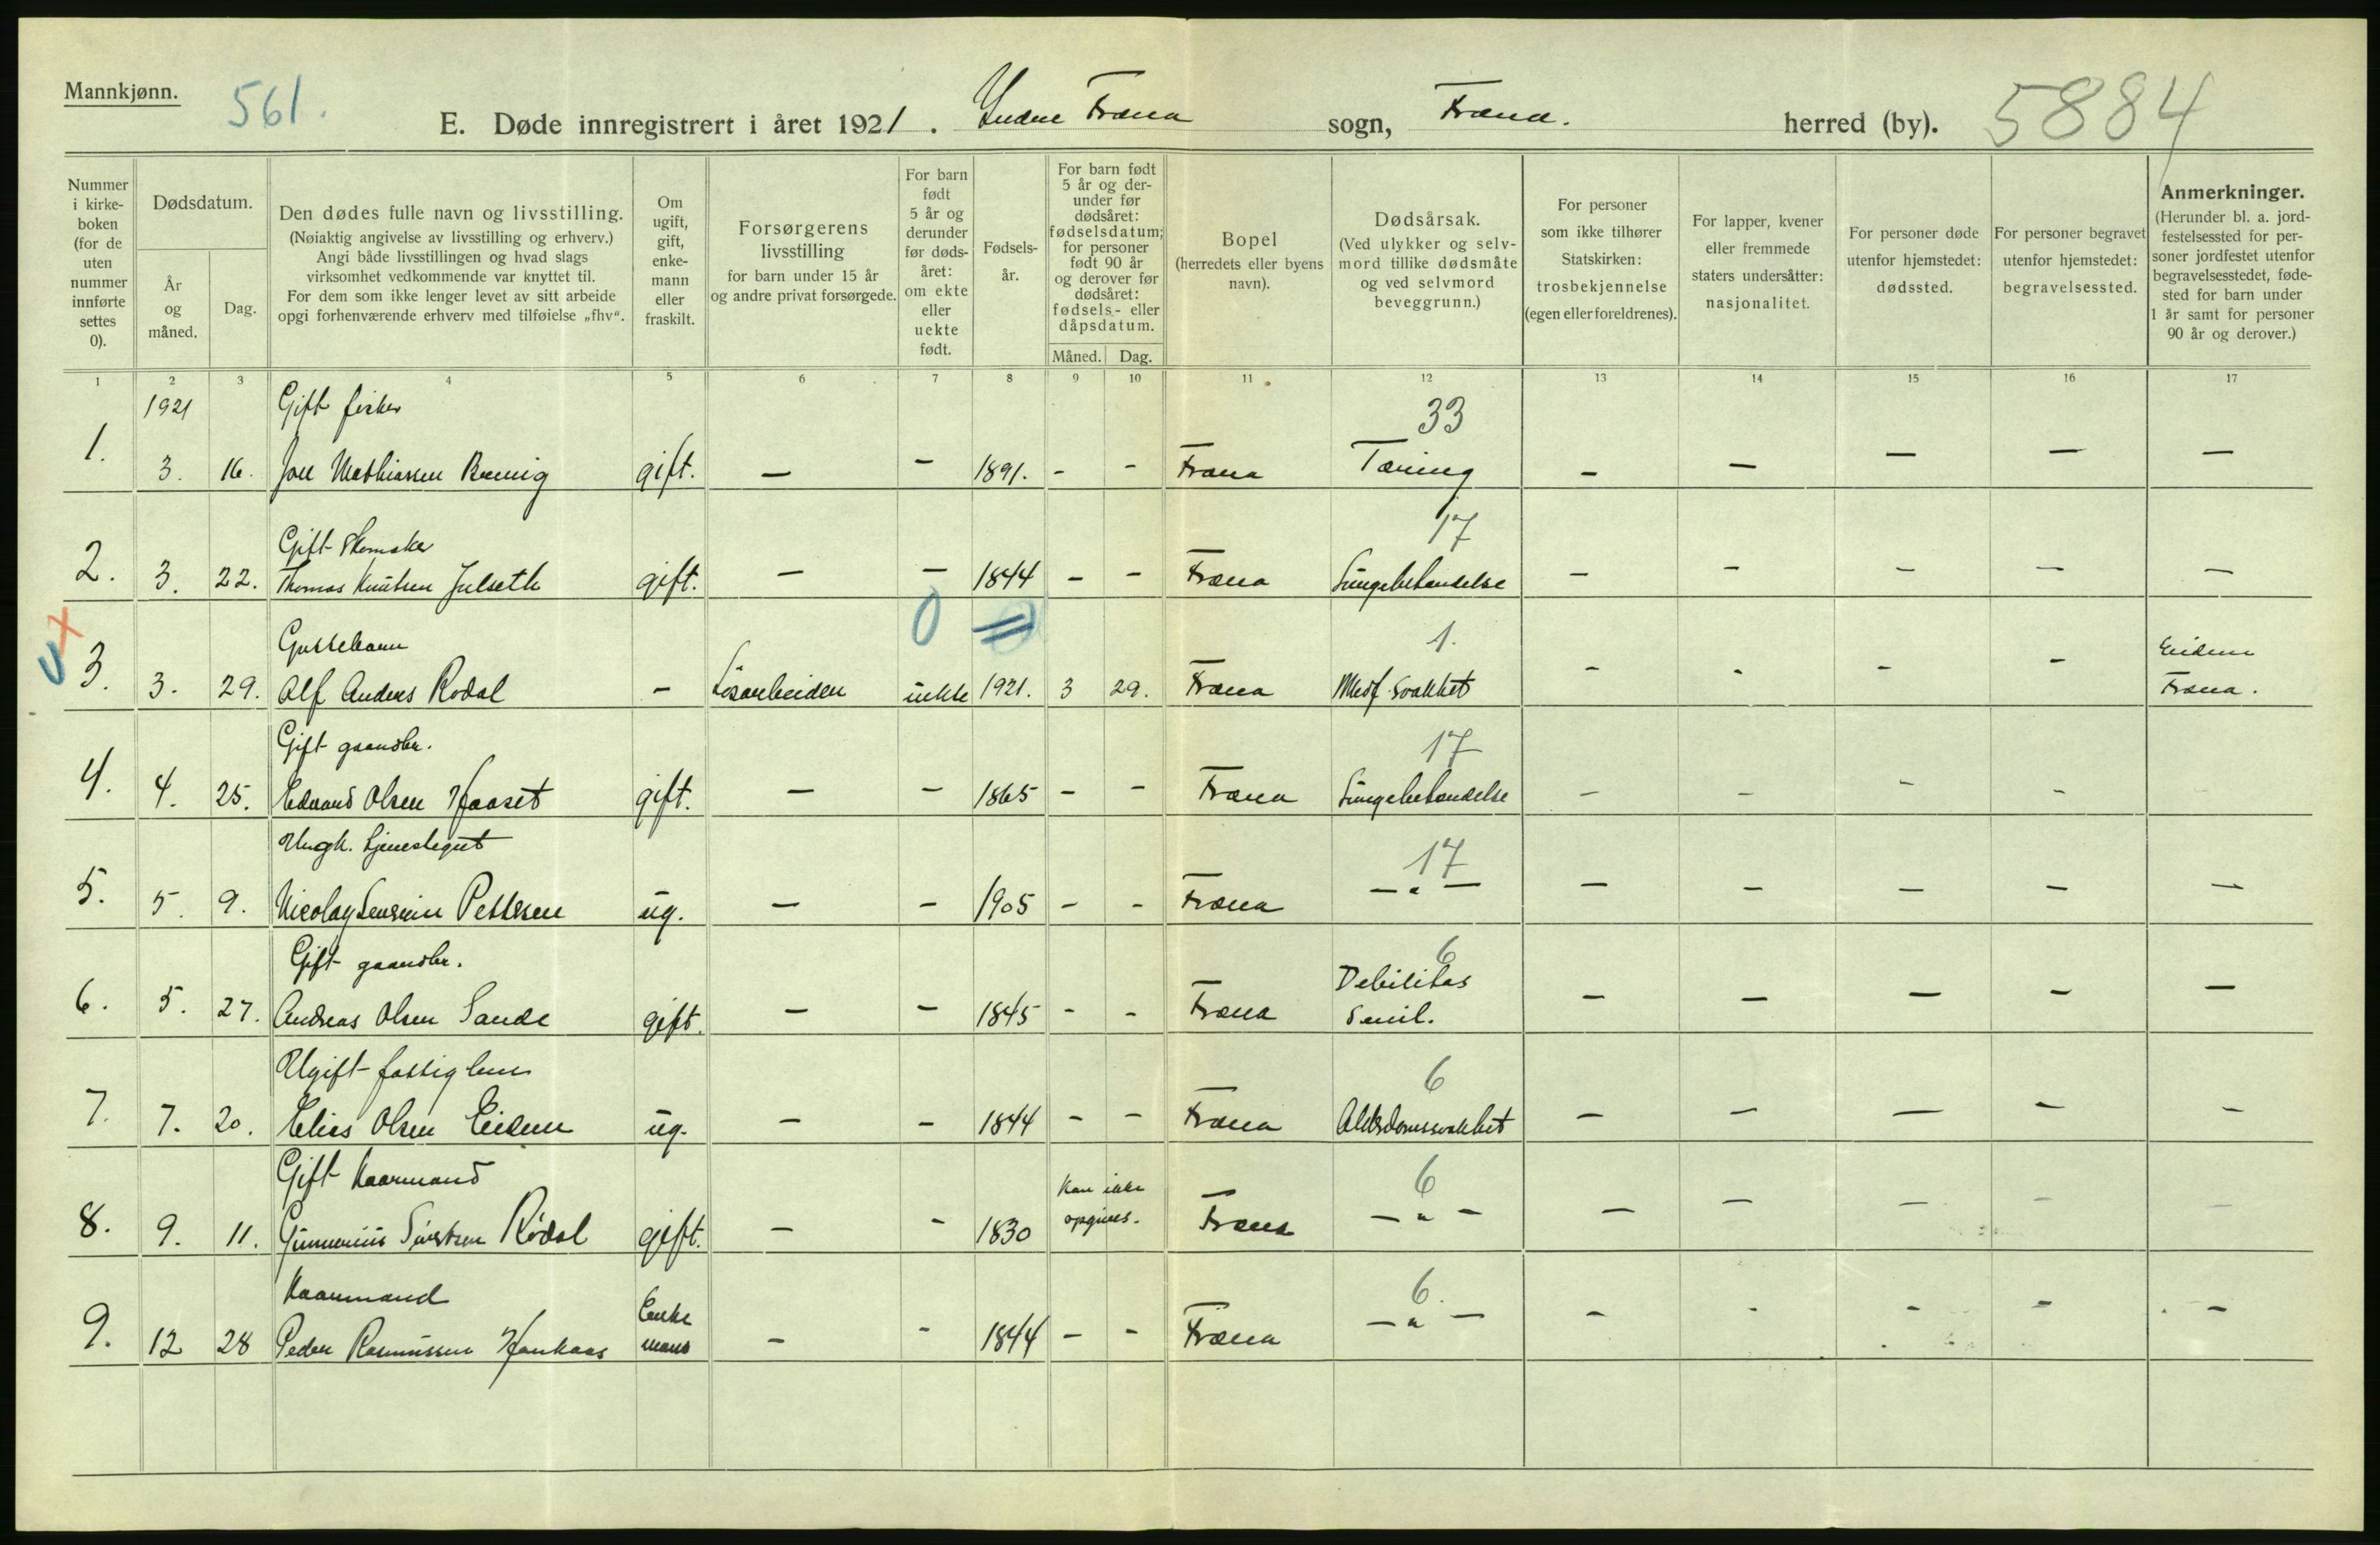 Mannkjønn.
561.
E. Døde innregistrert i året 1921. Indre Fræna sogn, Fræna. herred (by).
5884
Nummer i kirke-boken (for de uten nummer innførte settes 0).
Dødsdatum.
År og måned.
Dag.
Den dødes fulle navn og livsstilling.
(Nøiaktig angivelse av livsstilling og erhverv.)
Angi både livsstillingen og hvad slags
virksomhet vedkommende var knyttet til.
For dem som ikke lenger levet av sitt arbeide
opgi forhenværende erhverv med tilføielse „fhv“.
Om ugift, gift, enke-mann eller fraskilt.
Forsørgerens livsstilling
for barn under 15 år
og andre privat forsørgede.
For barn født 5 år og derunder før døds-året: om ekte eller uekte født.
Fødsels-år.
For barn født 5 år og der-under før dødsåret: fødselsdatum; for personer født 90 år og derover før dødsåret: fødsels- eller dåpsdatum.
Måned. Dag.
Bopel
(herredets eller byens navn).
Dødsårsak.
(Ved ulykker og selv-mord tillike dødsmåte og ved selvmord beveggrunn.)
For personer som ikke tilhører Statskirken: trosbekjennelse (egen eller foreldrenes).
For lapper, kvener eller fremmede staters undersåtter: nasjonalitet.
For personer døde utenfor hjemstedet: dødssted.
For personer begravet utenfor hjemstedet: begravelsessted.
Anmerkninger.
(Herunder bl. a. jord-festelsessted for per-soner jordfestet utenfor begravelsesstedet, føde-sted for barn under 1 år samt for personer 90 år og derover.)
1 2 3 4 5 6 7 8 9 10 11 12 13 14 15 16 17
1921 Gift fisker 33
1. 3. 16. Jon Mathiassen gift. — — 1891. - - Fræna Tæring — — — — —
Gift Skomaker 17
2. 3. 22. Thomas Knutsen Julseth gift. — — 1844 - - Fræna Lungebetændelse — — — — —
0
Guttebarn 1. Eidem
3. 3. 29. Alf Anders Rødal - Løsarbeider uekte 1921. 3 29. Fræna Medf. svakhet - - - - Fræna.
Gift gaardbr. 17
4. 4. 25. Edvard Olsen Haaset gift. — — 1865 - - Fræna Lungebetændelse — — - -
Ungk. tjenestegut 17
5. 5. 9. Nicolay Pettersen ug. — — 1905 - - Fræna — " — — — — — —
Gift gaardbr. 6
6. 5. 27. Andreas Olsen Sande gift. — — 1845 - - Fræna Debilitas senil. — — — — —
Ugift fattiglem 6
7. 7. 20. Elias Olsen Eidem ug. — — 1844 - - Fræna Alderdomssvakhet — — — — —
Gift Kaarmand 6
8. 9. 11. Gunnerius Sivertsen Rødal gift. — - 1830 Kan ikke opgives. Fræna — " — — — — — —
Kaarmand 6.
9. 12 28 Peder Rasmussen Haukaas Enkemand — - 1844 - - Fræna — " — - - - - -